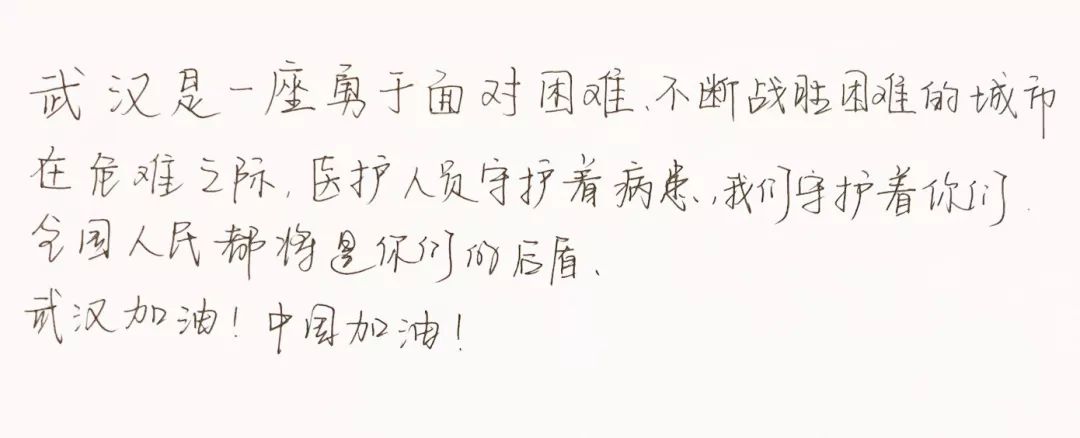 武汉是一座勇于面对困难、不断战胜困难的城市
在危难之际,医护人员守护着病患,我们守护着你们.
全国人民都将是你们的后盾、
武汉加油!中国加油!